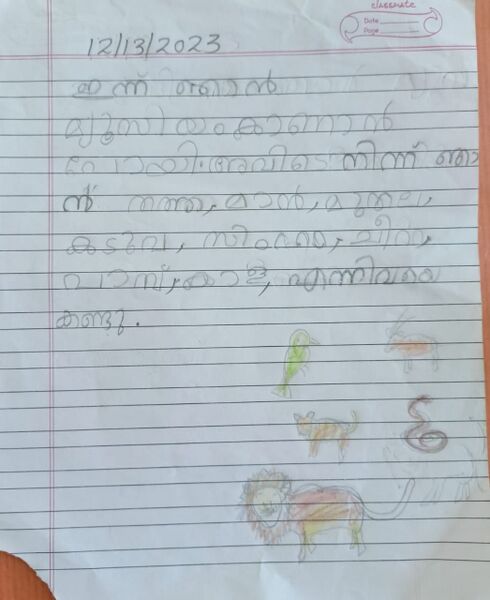 classmate
Date
Page
12/13/2023
ഇന്ന് ഞാൻ
മ്യൂസിയംകാണാൻ
പോയി.അവിടെ നിന്ന് ഞാ
ൻ തത്ത, മാൻ, മുതല,
കടുവ, സിംഹം, ചീറ്റ,
പാമ്പ്, കാള, എന്നിവയെ
കണ്ടു.